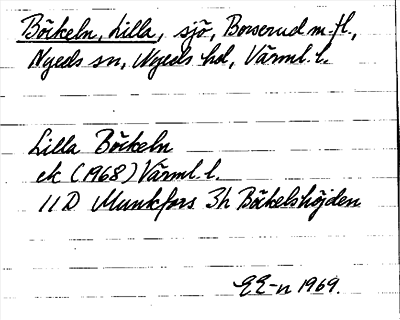 Böckeln, Lilla, sjö, Borserud m. fl.,
Nyeds sn, Nyeds hd, Värml. l.
Lilla Böckeln
ek (1968) Värml. l.
11 D Munkfors 3h Böckelshöjden
EE-n 1969.